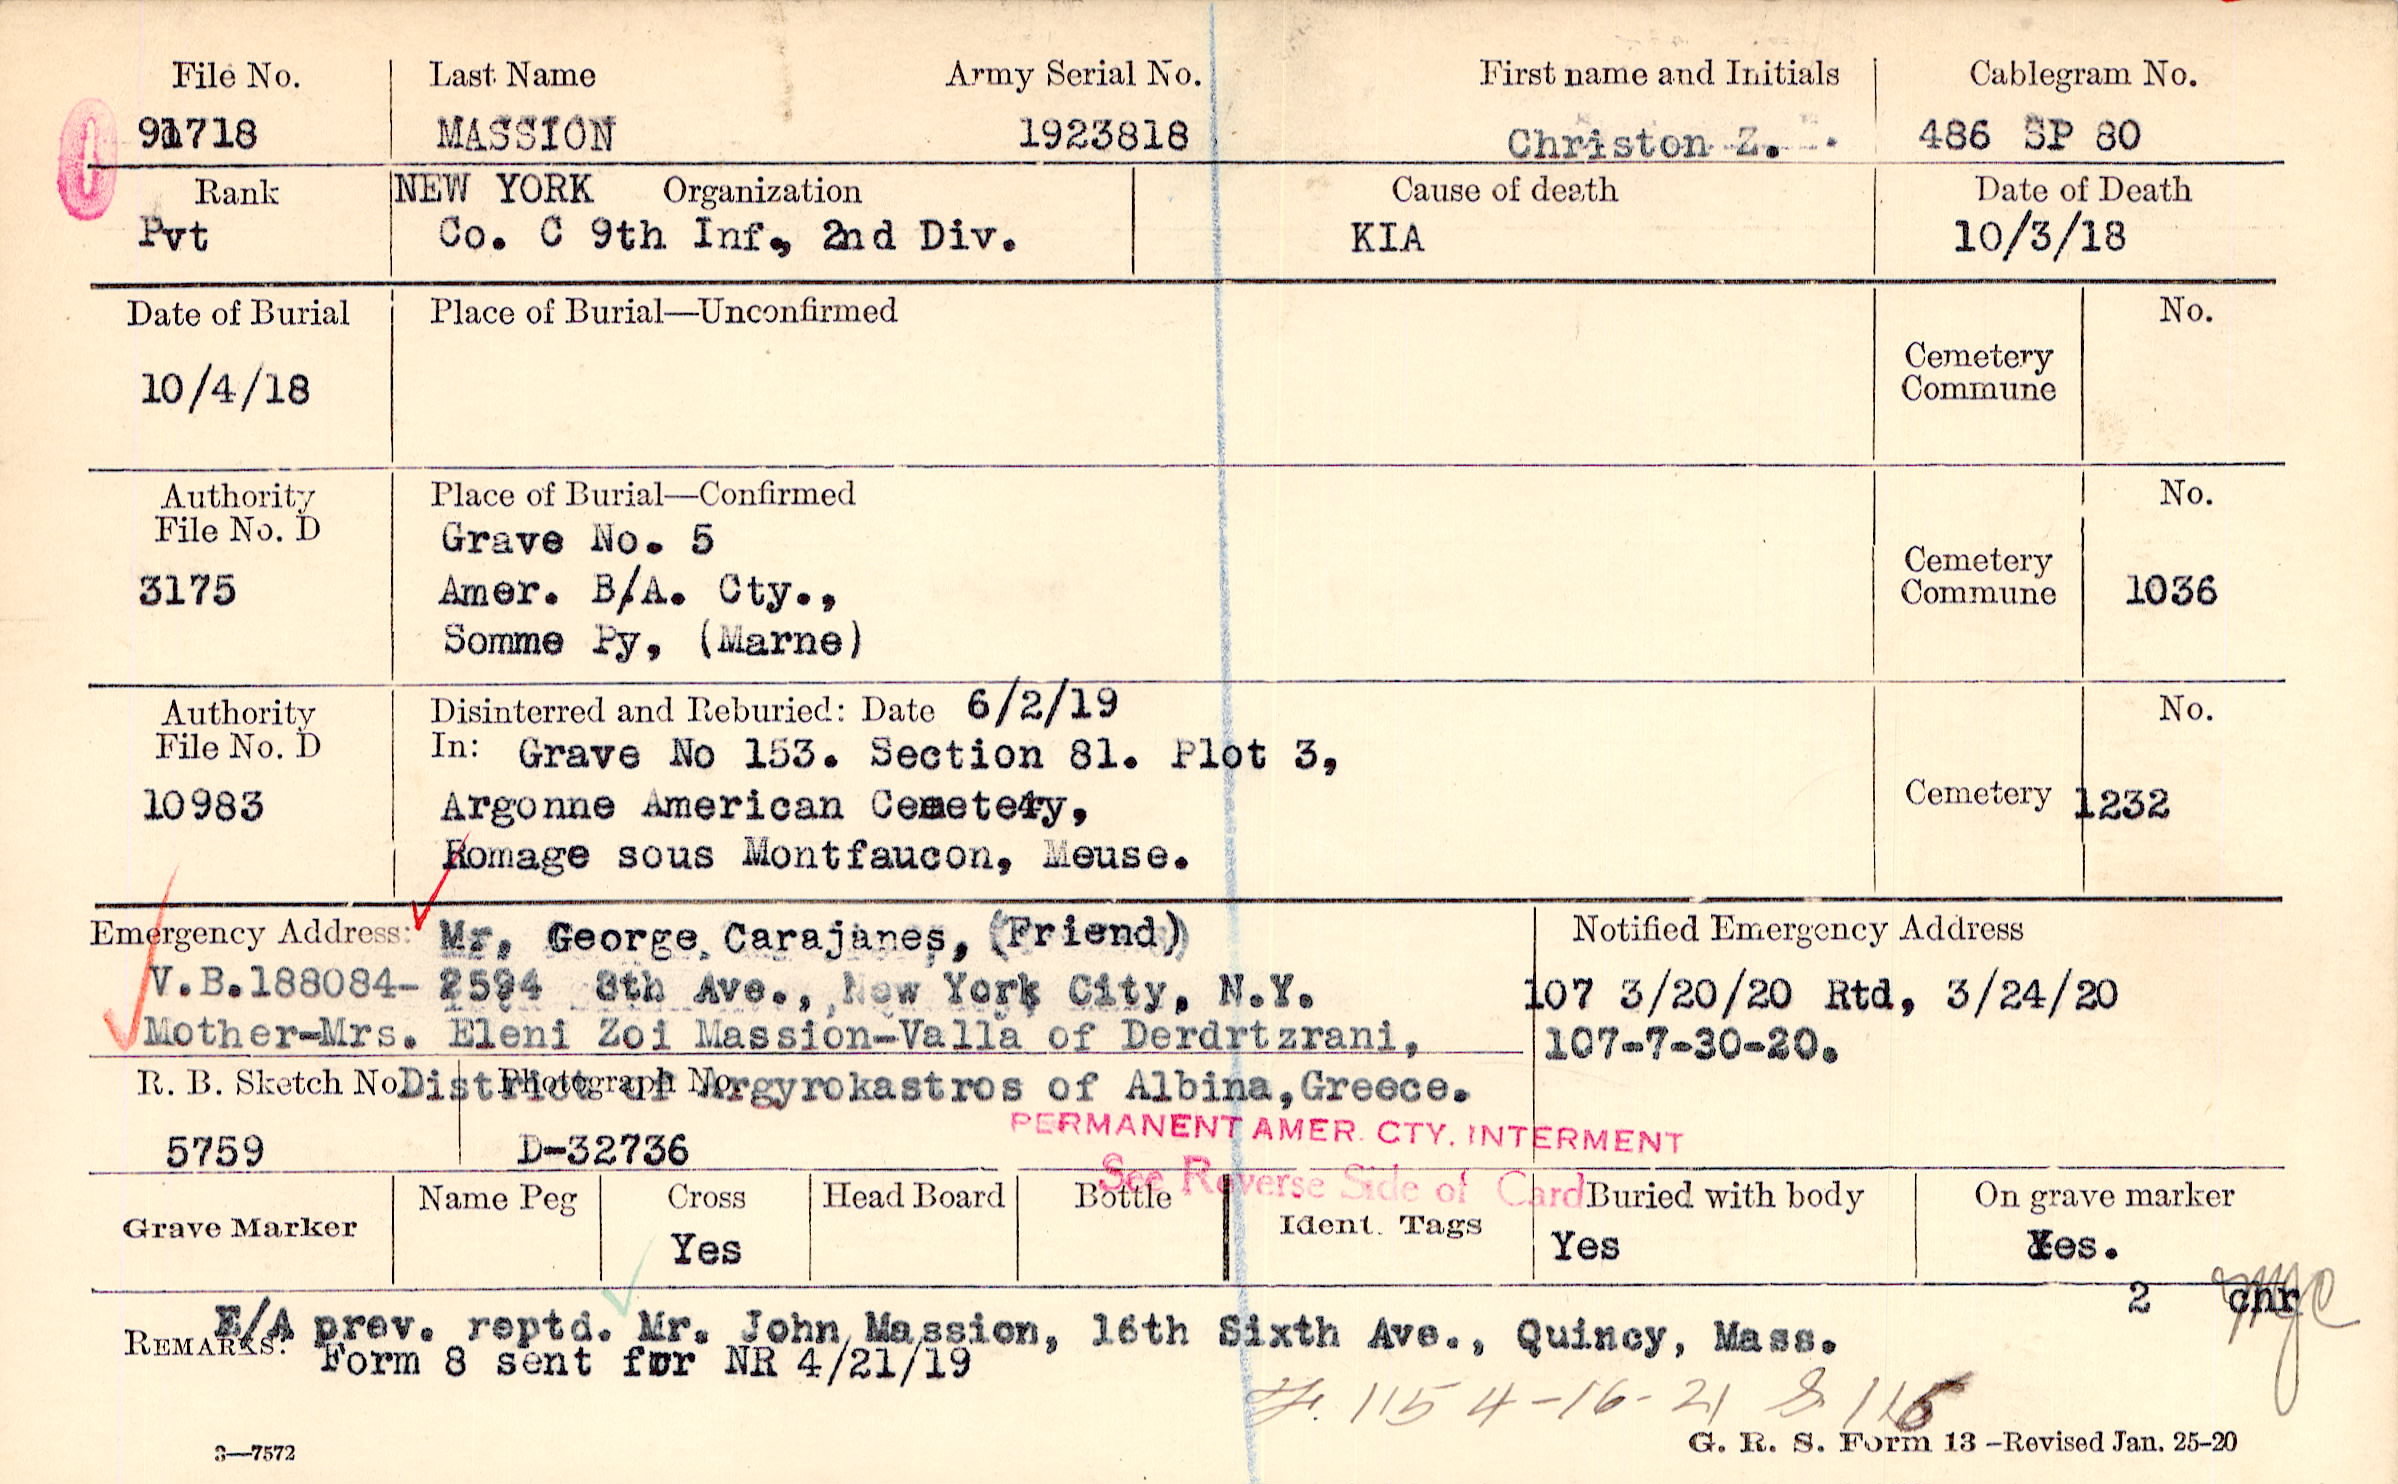 File No. Last Name Army Serial No. First name and Initials Cablegram No.
91718 MASSION 1923818 Christon Z. 486 SP 80
Rank NEW YORK Organization Cause of death Date of Death
Pvt Co. C 9th Inf., 2nd Div. KIA 10/3/18
Date of Burial Place of Burial—Unconfirmed No.
10/4/18 Cemetery
Commune
Authority Place of Burial—Confirmed No.
File No. D Grave No. 5
3175 Amer. B/A. Cty., Cemetery
Commune 1036
Somme Py, (Marne)
Authority Disinterred and Reburied: Date 6/2/19 No.
File No. D In: Grave No 153. Section 81. Plot 3,
10983 Argonne American Cemetery, Cemetery 1232
Romage sous Montfaucon, Meuse.
Emergency Address: Mr, George Carajanes, (Friend) Notified Emergency Address
V.B.188084- 2594 8th Ave., New York City, N.Y. 107 3/20/20 Rtd, 3/24/20
Mother-Mrs. Eleni Zoi Massion-Valla of Derdrtzrani, 107-7-30-20.
R. B. Sketch No. Photograph No.
District of Argyrokastros of Albina,Greece.
PERMANENT AMER. CTY. INTERMENT
5759 D-32736
See Reverse Side of Card
Grave Marker Name Peg Cross Head Board Bottle Ident. Tags Buried with body On grave marker
Yes Yes Yes.
2 chr
REMARKS: E/A prev. reptd. Mr. John Massion, 16th Sixth Ave., Quincy, Mass.
Form 8 sent for NR 4/21/19
115 4-16-21 S 116
3—7572 G. R. S. Form 13 -Revised Jan. 25-20